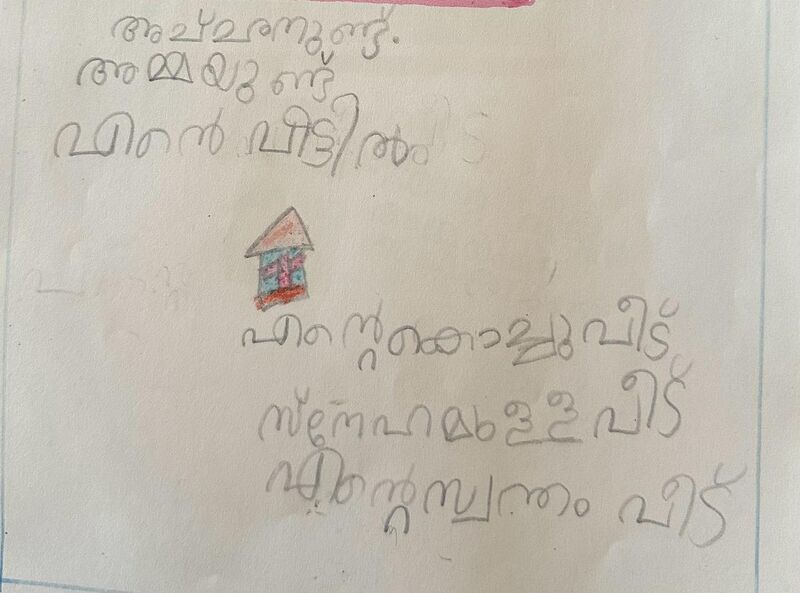 അച്ഛനുണ്ട്.
അമ്മയുണ്ട്
എൻെ വീട്ടിൽ
എന്റെകൊച്ചുവീട്
സ്നേഹമുള്ളവീട്
എന്റെസ്വന്തം വീട്